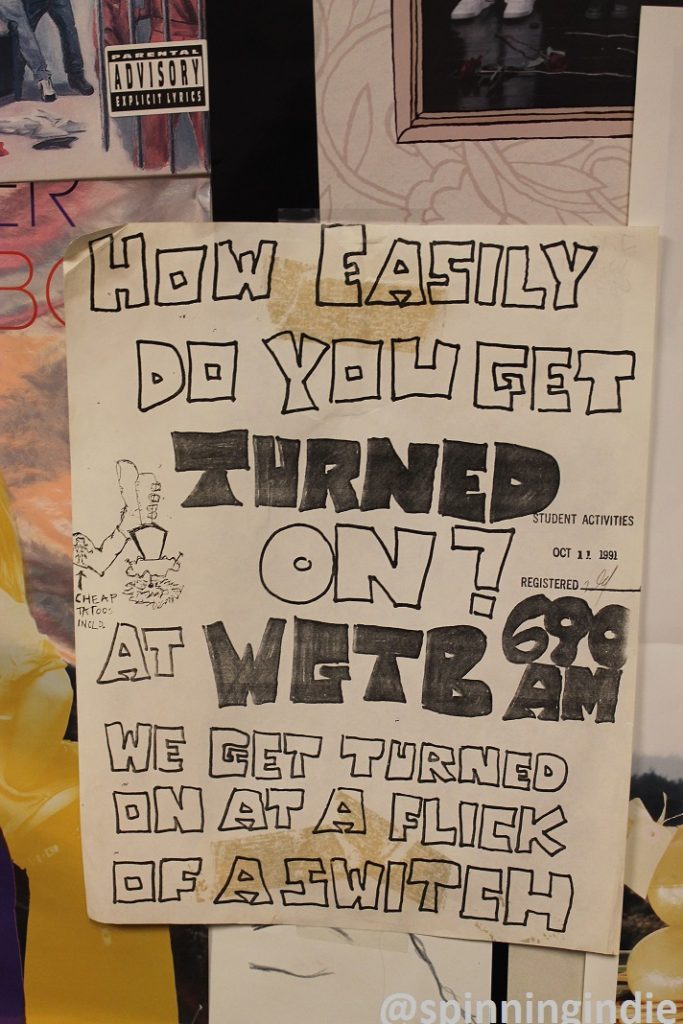 PARENTAL
ADVISORY
EXPLICIT LYRICS
ER
BO
HOW EASILY
DO YOU GET
TURNED
STUDENT ACTIVITIES
ON?
OCT 11 1991
REGISTERED
CHEAP
TATOOS
INCLD.
AT WGTB 690
AM
WE GET TURNED
ON AT A FLICK
OF A SWITCH
@spinningindie